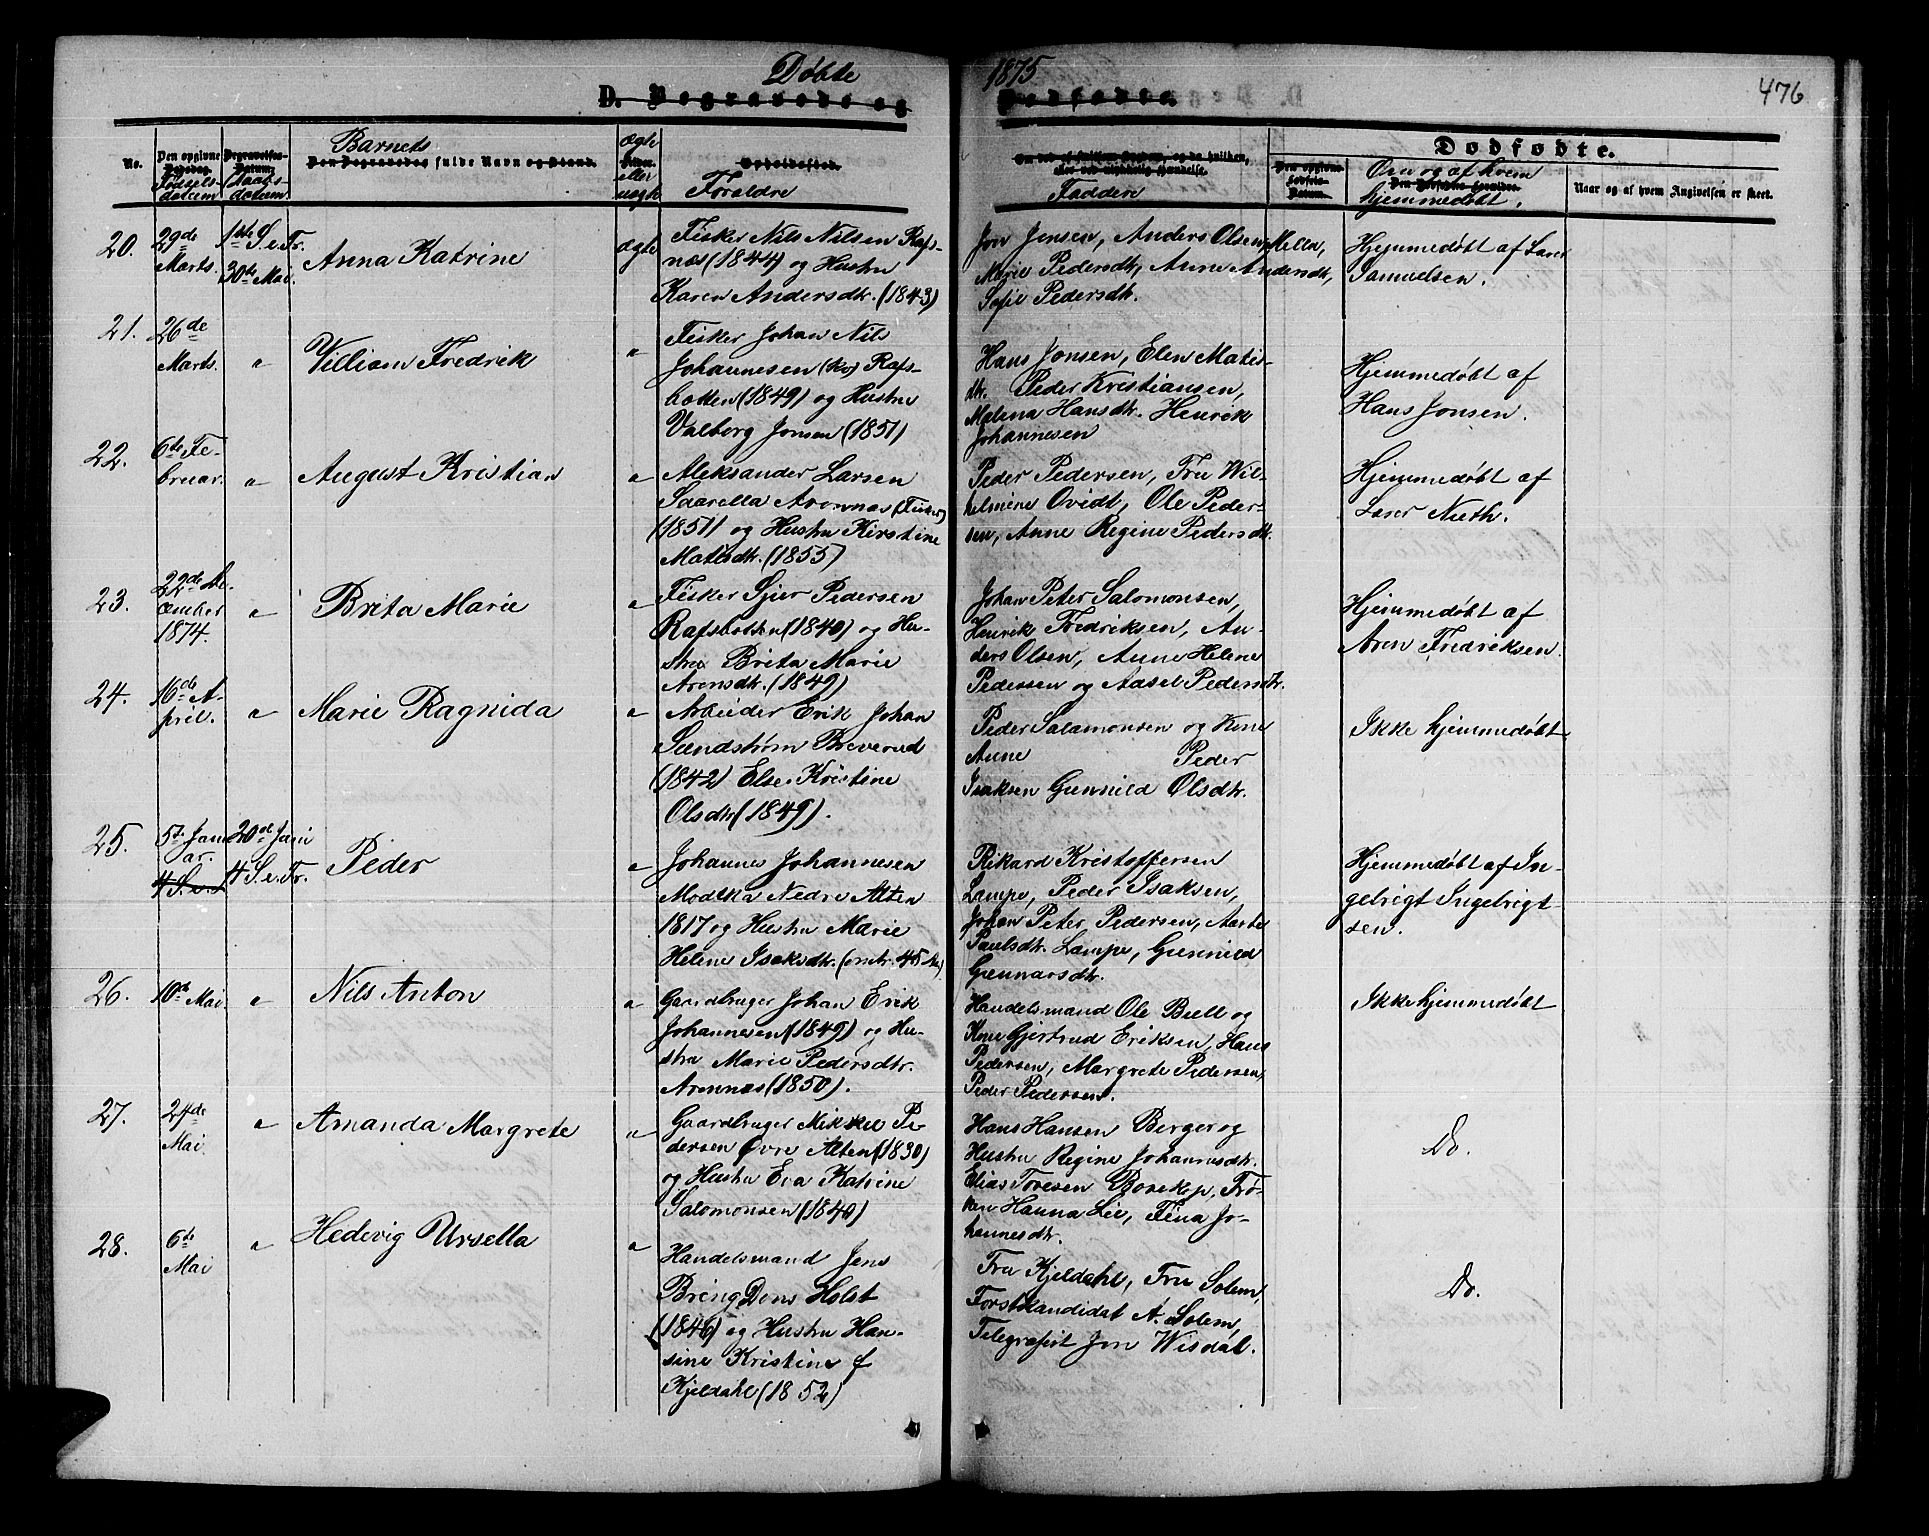 Døbte 1875
D. Begravede og Dødfødte.
476
Barnets
No.
Den opgivne
Dødsdag.
Fødsels-
datum
Begravelses-
Datum.
Daabs-
datum.
Den Begravedes fulde Navn og Stand.
ægte
eller
uægte
Opholdssted.
Forældre
Om død af smitsom Sygdom, og da hvilken,
eller ved ulykkelig Hændelse.
Faddere
Dødfødte.
Den opgivne
Fødsels-
Datum.
Om og af hvem
Den Dødfødtes Forældre.
hjemmedøbt.
Naar og af hvem Angivelsen er skeet.
20.
29de
Marts.
1ste S. e. Fr.
30te Mai.
Anna Katrine
ægte
Fisker Nils Nilsen Rafs-
næs (1844) og Hustru
Karen Andersdtr. (1843)
Jon Jensen, Anders Olsen Mella,
Marie Pedersdtr, Anne Andersdtr,
Sofie Pedersdtr.
Hjemmedøbt af Lærer
Samuelsen.
21.
26de
Marts.
"
Villiam Fredrik
"
Fisker Johan Nils
Johannesen (kv) Rafs-
botten (1849) og Hustru
Valborg Jonsen (1851)
Hans Jonsen, Elen Matis-
dtr. Peder Kristiansen,
Malena Hansdtr. Henrik
Johannesen
Hjemmedøbt af
Hans Jonsen.
22.
6te Fe-
bruar.
"
August Kristian
"
Aleksander Larsen
Saarella Aronnæs (Fisker)
(1851) og Hustru Kirstine
Matisdtr. (1855)
Peder Pedersen, Fru Wil-
helmine Ovidt, Ole Peder-
sen, Anne Regine Pedersdtr.
Hjemmedøbt af
Lærer Nieth.
23.
22de De-
cember
1874.
"
Brita Marie
"
Fisker Sjur Pedersen
Rafsbotten (1840) og Hu-
stru Brita Marie
Arensdtr. (1849)
Johan Peter Salomonsen,
Henrik Fredriksen, An-
ders Olsen, Anne Helene
Pedersen og Aasel Pedersdtr.
Hjemmedøbt af
Aron Fredriksen.
24.
16de A-
pril.
"
Marie Ragnida
"
Arbeider Erik Johan
Sundstrøm Breverud
(1842) Else Kristine
Olsdtr (1849).
Peder Salamonsen og Kone
Anne Peder
Isaksen Gunnild Olsdtr.
Ikke hjemmedøbt
25.
5te Janu-
ar.
4 S. e.
20de Juni
4 S. e. Fr.
Peder
"
Johannes Johannesen
Modtka Nedre Alten
1817 og Hustru Marie
Helene Isaksdtr. (omtr. 45 Aar)
Rikard Kristoffersen
Lampe, Peder Isaksen,
Johan Peter Pedersen,
Paulsdtr. Lampe, Gunnild
Gunnarsdtr.
Hjemmedøbt af In-
gebrigt Ingebrigt-
sen.
26.
10de Mai.
"
Nils Anton
"
Gaardbruger Johan Erik
Johannesen (1849) og Hu-
stru Marie Pedersdtr.
Aronnæs (1850).
Handelsmand Ole Bull og
Kone Gjertrud Eriksen, Hans
Pedersen, Margrete Pedersen,
Peder Pedersen.
Ikke hjemmedøbt
27.
24de
Mai.
"
Amanda Margrete
"
Gaardbruger Mikkel Pe-
dersen Øvre Alten (1830)
og Hustru Eva Katrine
Salomonsen (1840)
Hans Hansen Berger og
Hustru Regine Johannesdtr.
Elias Toresen Bosekop, Frø-
ken Hanna Lie, Tina Jo-
hannesdtr.
Do.
28.
6te
Mai
"
Hedevig Ursella
"
Handelsmand Jens
Breng Dons Holst
(1846) og Hustru Han-
sine Kristine f
Kjeldahl (1852)
Fru Kjeldahl, Fru Solem,
Forstkandidat A. Solem,
Telegrafist Jon Wisdal.
Do.